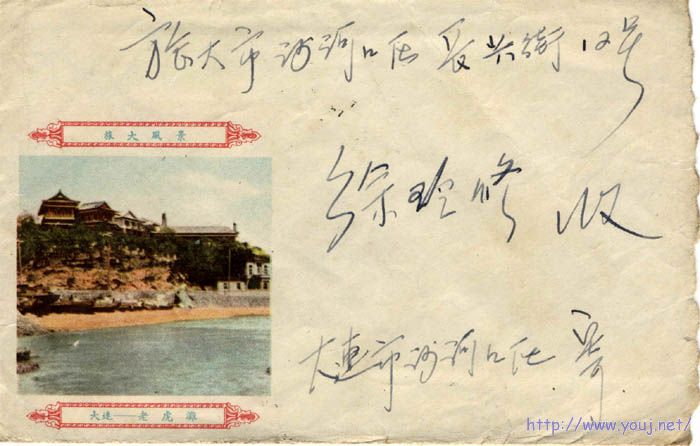 旅大市沙河口区长兴街12号
旅大風景
徐 修 收
大连市沙河口区 寄
大連——老虎灘
http://www.youj.net/